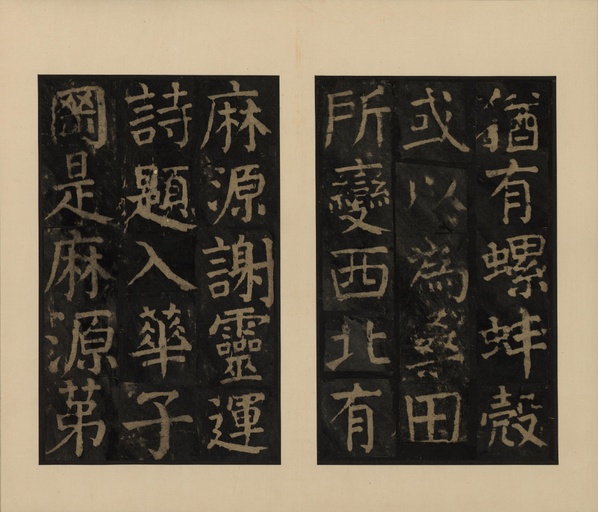 猶有螺蚌殼
或以為桑田
所變西北有
麻源謝靈運
詩題入華子
岡是麻源第